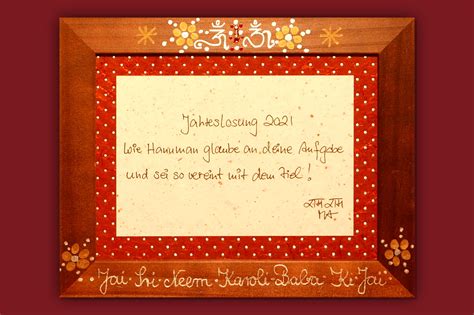 ॐ ॐ
Jahreslosung 2021
Wie Hanuman glaube an deine Aufgabe
und sei so vereint mit dem Ziel!
राम राम
MA
Jai Sri Neem Karoli Baba Ki Jai